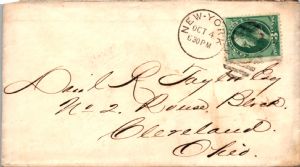 NEW-YORK
OCT 4
6 30 PM
Esq
No 2. Rouse Block
Cleveland
Ohio.